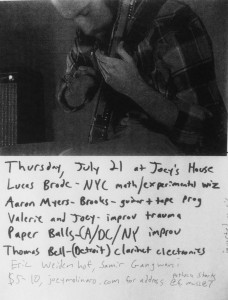 Thursday, July 21 at Joey's House
Lucas Brode - NYC math/experimental wiz
Aaron Myers-Brooks - guitar + tape prog
Valerie and Joey - improv trauma
Paper Balls - CA/DC/NY improv
Thomas Bell - (Detroit) clarinet electronics
Eric Weidenhof, Samir Gangwani
$5-10, joeymolinaro.com for address
music starts